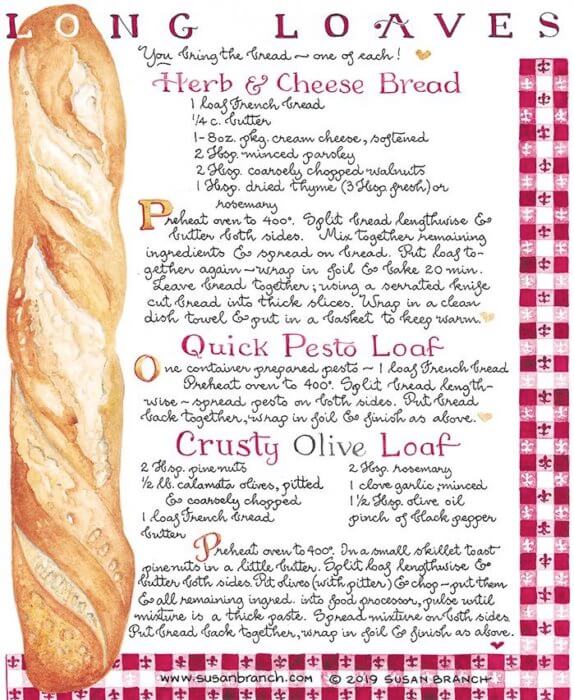 LONG LOAVES
You bring the bread ~ one of each!
Herb & Cheese Bread
1 loaf French bread
1/4 c. butter
1-8oz. pkg. cream cheese, softened
2 Tbsp. minced parsley
2 Tbsp. coarsely chopped walnuts
1 Tbsp. dried thyme (3 Tbsp. fresh) or
rosemary
Preheat oven to 400°. Split bread lengthwise &
butter both sides. Mix together remaining
ingredients & spread on bread. Put loaf to-
gether again ~ wrap in foil & bake 20 min.
Leave bread together; using a serrated knife
cut bread into thick slices. Wrap in a clean
dish towel & put in a basket to keep warm.
Quick Pesto Loaf
One container prepared pesto ~ 1 loaf French bread
Preheat oven to 400°. Split bread length-
wise ~ spread pesto on both sides. Put bread
back together, wrap in foil & finish as above.
Crusty Olive Loaf
2 Tbsp. pine nuts
1/2 lb. calamata olives, pitted
& coarsely chopped
1 loaf French bread
butter
2 Tbsp. rosemary
1 clove garlic, minced
1 1/2 Tbsp. olive oil
pinch of black pepper
Preheat oven to 400°. In a small skillet toast
pine nuts in a little butter. Split loaf lengthwise &
butter both sides. Pit olives (with pitter) & chop ~ put them
& all remaining ingred. into food processor, pulse until
mixture is a thick paste. Spread mixture on both sides.
Put bread back together, wrap in foil & finish as above.
www.susanbranch.com © 2019 SUSAN BRANCH